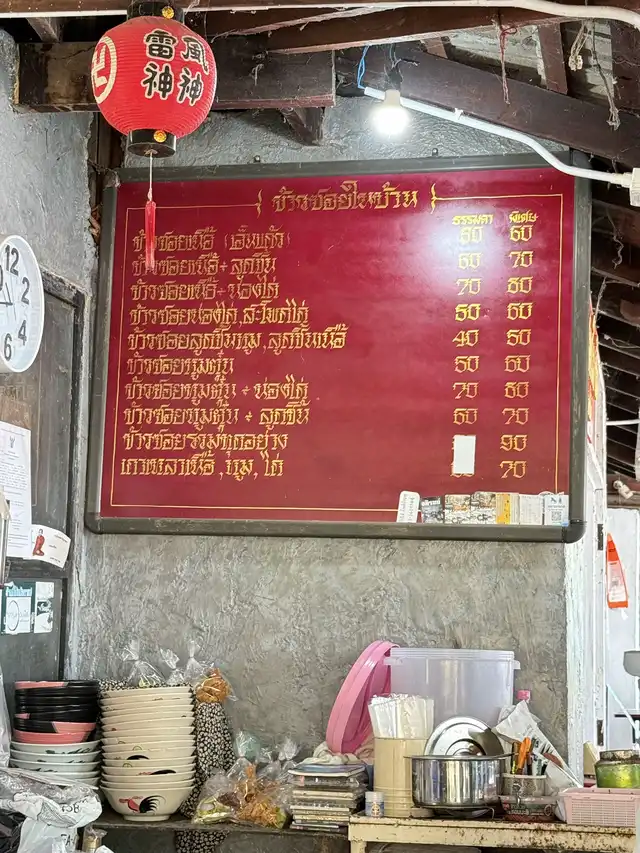 風神
雷神
ข้าวซอยในบ้าน
ธรรมดา พิเศษ
ข้าวซอยเนื้อ (เอ็นแก้ว) 50 60
ข้าวซอยเนื้อ + ลูกชิ้น 60 70
ข้าวซอยเนื้อ + น่องไก่ 70 80
ข้าวซอยน่องไก่, สะโพกไก่ 50 60
ข้าวซอยลูกชิ้นหมู, ลูกชิ้นเนื้อ 40 50
ข้าวซอยหมูตุ๋น 50 60
ข้าวซอยหมูตุ๋น + น่องไก่ 70 80
ข้าวซอยหมูตุ๋น + ลูกชิ้น 60 70
ข้าวซอยรวมทุกอย่าง 90
เกาเหลาเนื้อ, หมู, ไก่ 70
12
2
3
4
6